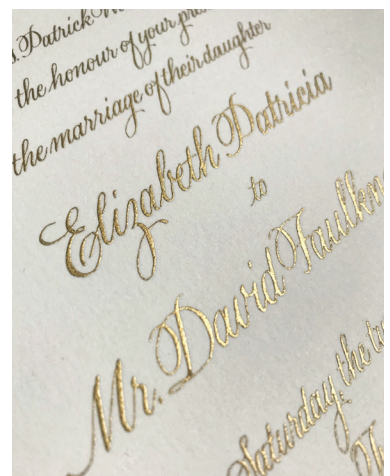 Patrick
the honour of your
the marriage of their daughter
Elizabeth Patricia
to
Mr. David
Saturday the